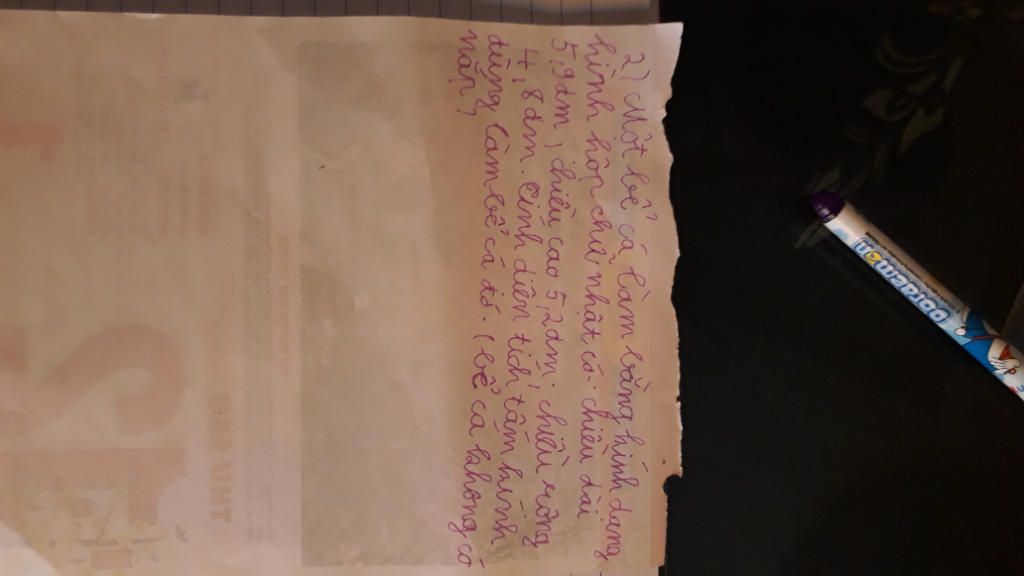 2) Một bể cá làm bằng kính dạng
hình hộp chữ nhật có: chiều dài
5,9dm, chiều cao 5,2dm; chiều rộng
4,8 dm. Tính diện tích tấm kính
dùng làm bể cá đó. (bể cá không có
nắp)
Doraemon